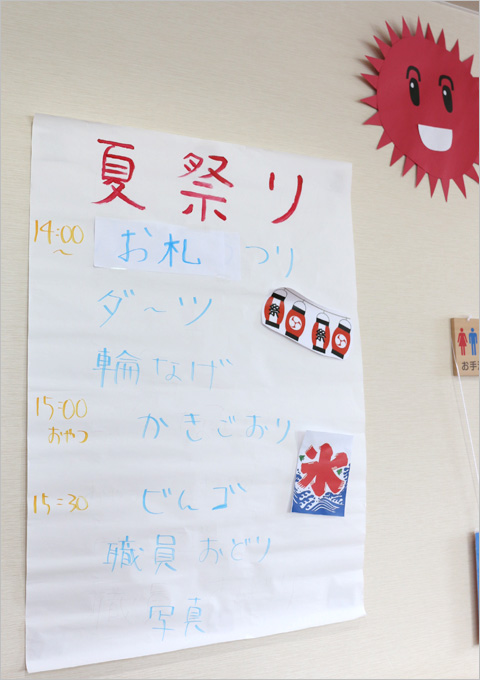 夏祭り
14:00 お札 つり
～
ダーツ
祭 祭
輪なげ
15:00 かきごおり
おやつ
氷
15:30 びんゴ
職員おどり
写真
お手